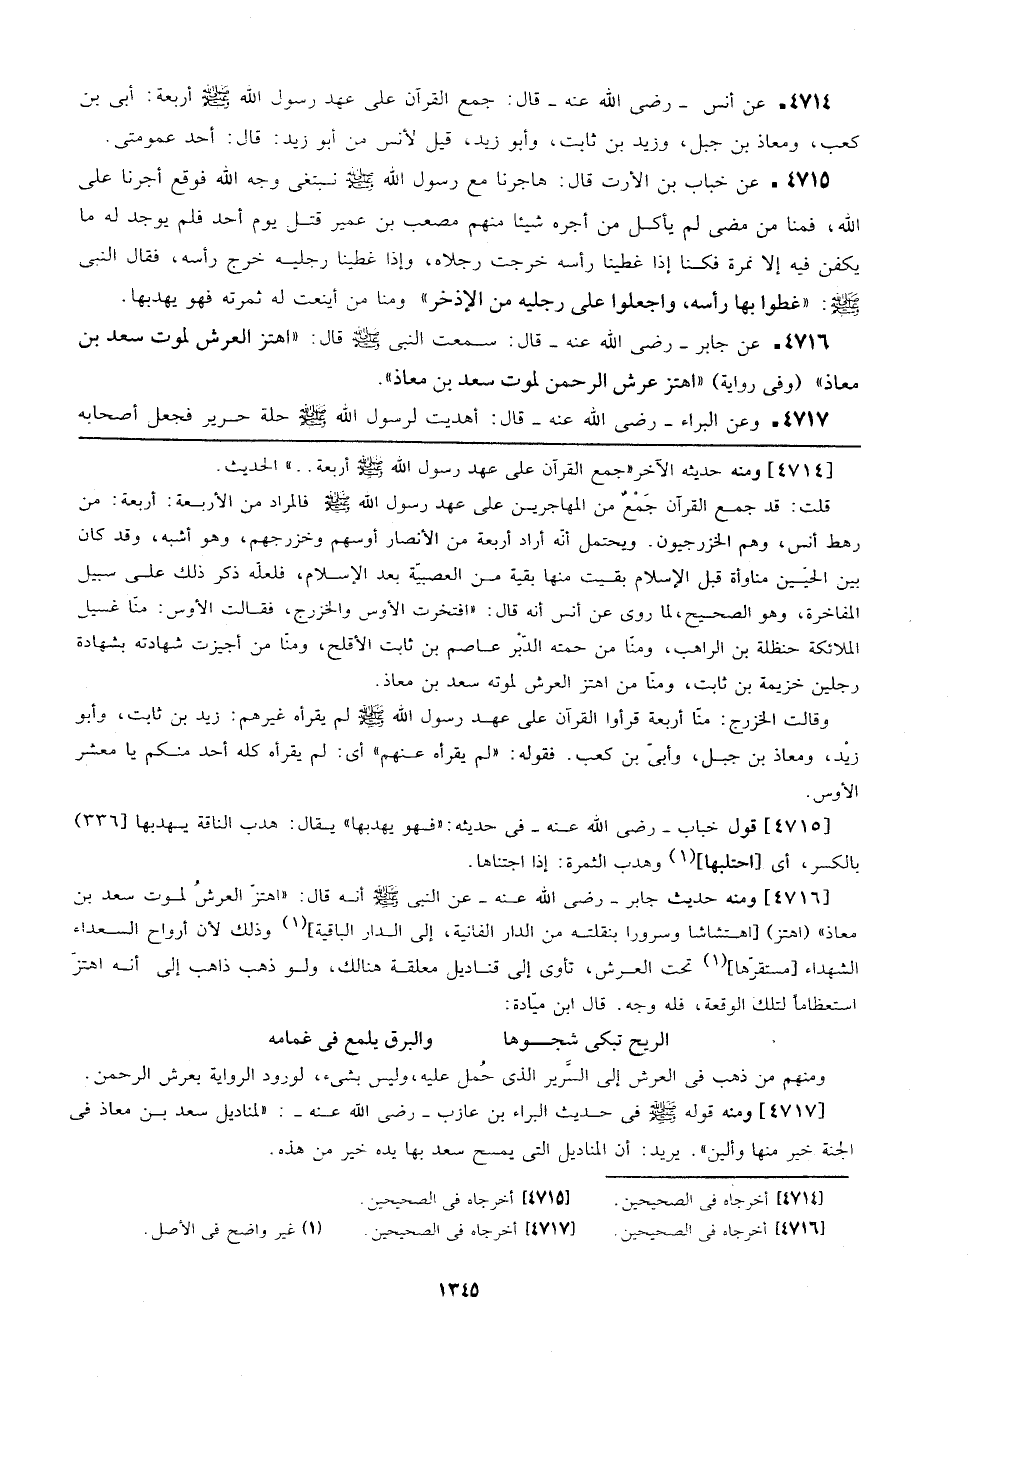 ٤٧١٤. عن أنس ـ رضى الله عنه ـ قال: جمع القرآن على عهد رسول الله ﷺ أربعة: أبى بن
كعب، ومعاذ بن جبل، وزيد بن ثابت، وأبو زيد، قيل لأنس من أبو زيد: قال: أحد عمومتى.
٤٧١٥. عن خباب بن الأرت قال: هاجرنا مع رسول الله ﷺ نبتغى وجه الله فوقع أجرنا على
الله، فمنا من مضى لم يأكل من أجره شيئا منهم مصعب بن عمير قتل يوم أحد فلم يوجد له ما
يكفن فيه إلا نمرة فكنا إذا غطينا رأسه خرجت رجلاه، وإذا غطينا رجليه خرج رأسه، فقال النبى
ﷺ: «غطوا بها رأسه، واجعلوا على رجليه من الإذخر» ومنا من أينعت له ثمرته فهو يهدبها.
٤٧١٦. عن جابر ـ رضى الله عنه ـ قال: سمعت النبى ﷺ قال: «اهتز العرش لموت سعد بن
معاذ» (وفى رواية) «اهتز عرش الرحمن لموت سعد بن معاذ».
٤٧١٧. وعن البراء ـ رضى الله عنه ـ قال: أهديت لرسول الله ﷺ حلة حرير فجعل أصحابه
[٤٧١٤] ومنه حديثه الآخر «جمع القرآن على عهد رسول الله ﷺ أربعة ..» الحديث.
قلت: قد جمع القرآن جَمْعٌ من المهاجرين على عهد رسول الله ﷺ فالمراد من الأربعة: أربعة: من
رهط أنس، وهم الخزرجيون. ويحتمل أنّه أراد أربعة من الأنصار أوسهم وخزرجهم، وهو أشبه، وقد كان
بين الحيّين مناوأة قبل الإسلام بقيت منها بقية من العصبيّة بعد الإسلام، فلعلّه ذكر ذلك على سبيل
المفاخرة، وهو الصحيح، لما روى عن أنس أنه قال: «افتخرت الأوس والخزرج، فقالت الأوس: منّا غسيل
الملائكة حنظلة بن الراهب، ومنّا من حمته الدّبْر عاصم بن ثابت الأقلح، ومنّا من أجيزت شهادته بشهادة
رجلين خزيمة بن ثابت، ومنّا من اهتز العرش لموته سعد بن معاذ.
وقالت الخزرج: منّا أربعة قرأوا القرآن على عهد رسول الله ﷺ لم يقرأه غيرهم: زيد بن ثابت، وأبو
زيْد، ومعاذ بن جبل، وأبىّ بن كعب. فقوله: «لم يقرأه عنهم» أى: لم يقرأه كله أحد منكم يا معشر
الأوس.
[٤٧١٥] قول خباب ـ رضى الله عنه ـ فى حديثه: «فهو يهدبها» يقال: هدب الناقة يهدبها [٣٣٦)
بالكسر، أى [احتلبها](١) وهدب الثمرة: إذا اجتناها.
[٤٧١٦] ومنه حديث جابر ـ رضى الله عنه ـ عن النبى ﷺ أنه قال: «اهتزّ العرشُ لموت سعد بن
معاذ» (اهتز) [اهتشاشا وسرورا بنقلته من الدار الفانية، إلى الدار الباقية](١) وذلك لأن أرواح السعداء
الشهداء [مستقرّها](١) تحت العرش، تأوى إلى قناديل معلقة هنالك، ولو ذهب ذاهب إلى أنه اهتزّ
استعظاماً لتلك الوقعة، فله وجه. قال ابن ميّادة:
الريح تبكى شجوها والبرق يلمع فى غمامه
ومنهم من ذهب فى العرش إلى السَّرير الذى حُمل عليه، وليس بشىء، لورود الرواية بعرش الرحمن.
[٤٧١٧] ومنه قوله ﷺ فى حديث البراء بن عازب ـ رضى الله عنه ـ : «لمناديل سعد بن معاذ فى
الجنة خير منها وألين». يريد: أن المناديل التى يمسح سعد بها يده خير من هذه.
[٤٧١٤] أخرجاه فى الصحيحين. [٤٧١٥] أخرجاه فى الصحيحين.
[٤٧١٦] أخرجاه فى الصحيحين. [٤٧١٧] أخرجاه فى الصحيحين. (١) غير واضح فى الأصل.
١٣٤٥